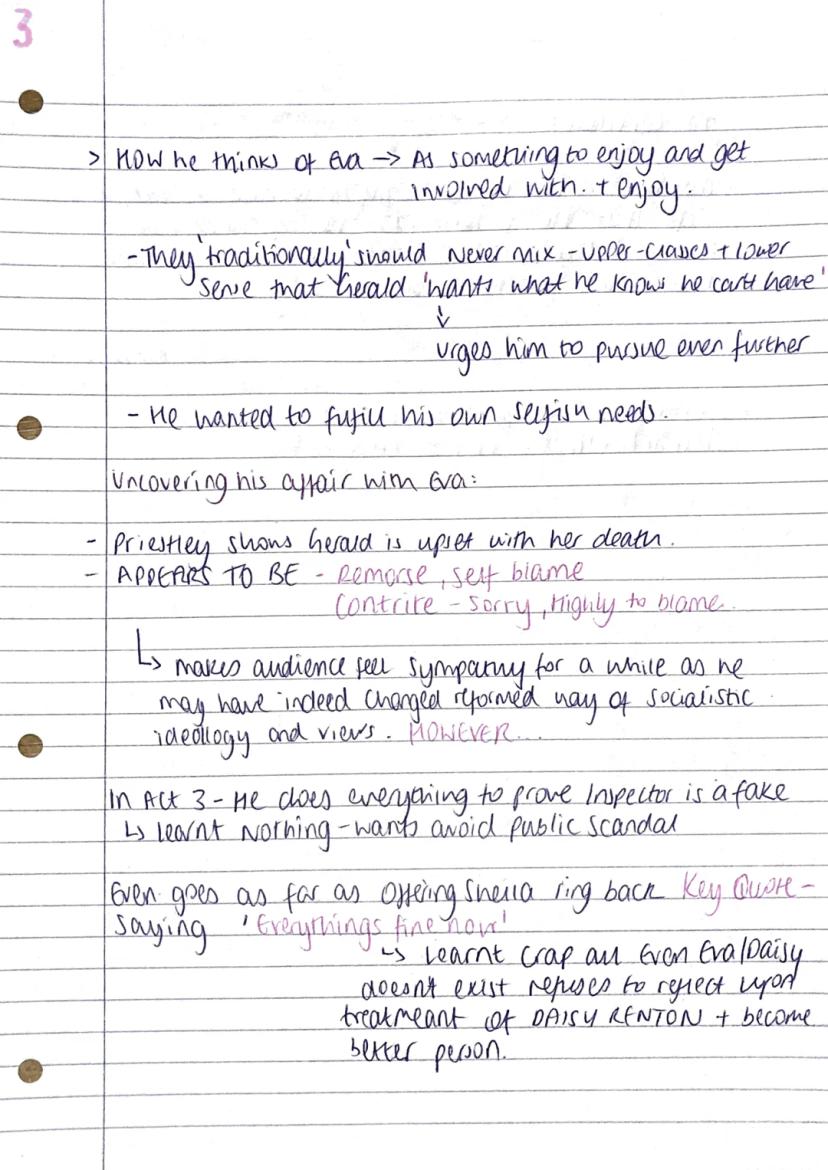 3
> How he thinks of Eva → As something to enjoy and get
involved with. + enjoy.
- They 'traditionally' should Never mix - upper-classes + lower
sense that Gerald 'wants what he knows he can't have'
↓
urges him to pursue even further
- He wanted to fufill his own selfish needs.
Uncovering his affair with Eva:
- Priestley shows Gerald is upset with her death.
- APPEARS TO BE - Remorse, self blame
Contrite - sorry, Highly to blame.
↳ makes audience feel sympathy for a while as he
may have indeed changed reformed way of socialistic
ideology and views. HOWEVER...
In Act 3 - He does everything to prove Inspector is a fake
↳ learnt Nothing - wants avoid public scandal
Even goes as far as offering Sheila ring back Key Quote -
saying 'Everythings fine now'
↳ learnt crap all Even Eva/Daisy
doesn't exist refuses to reflect upon
treatmeant of DAISY RENTON + become
better person.